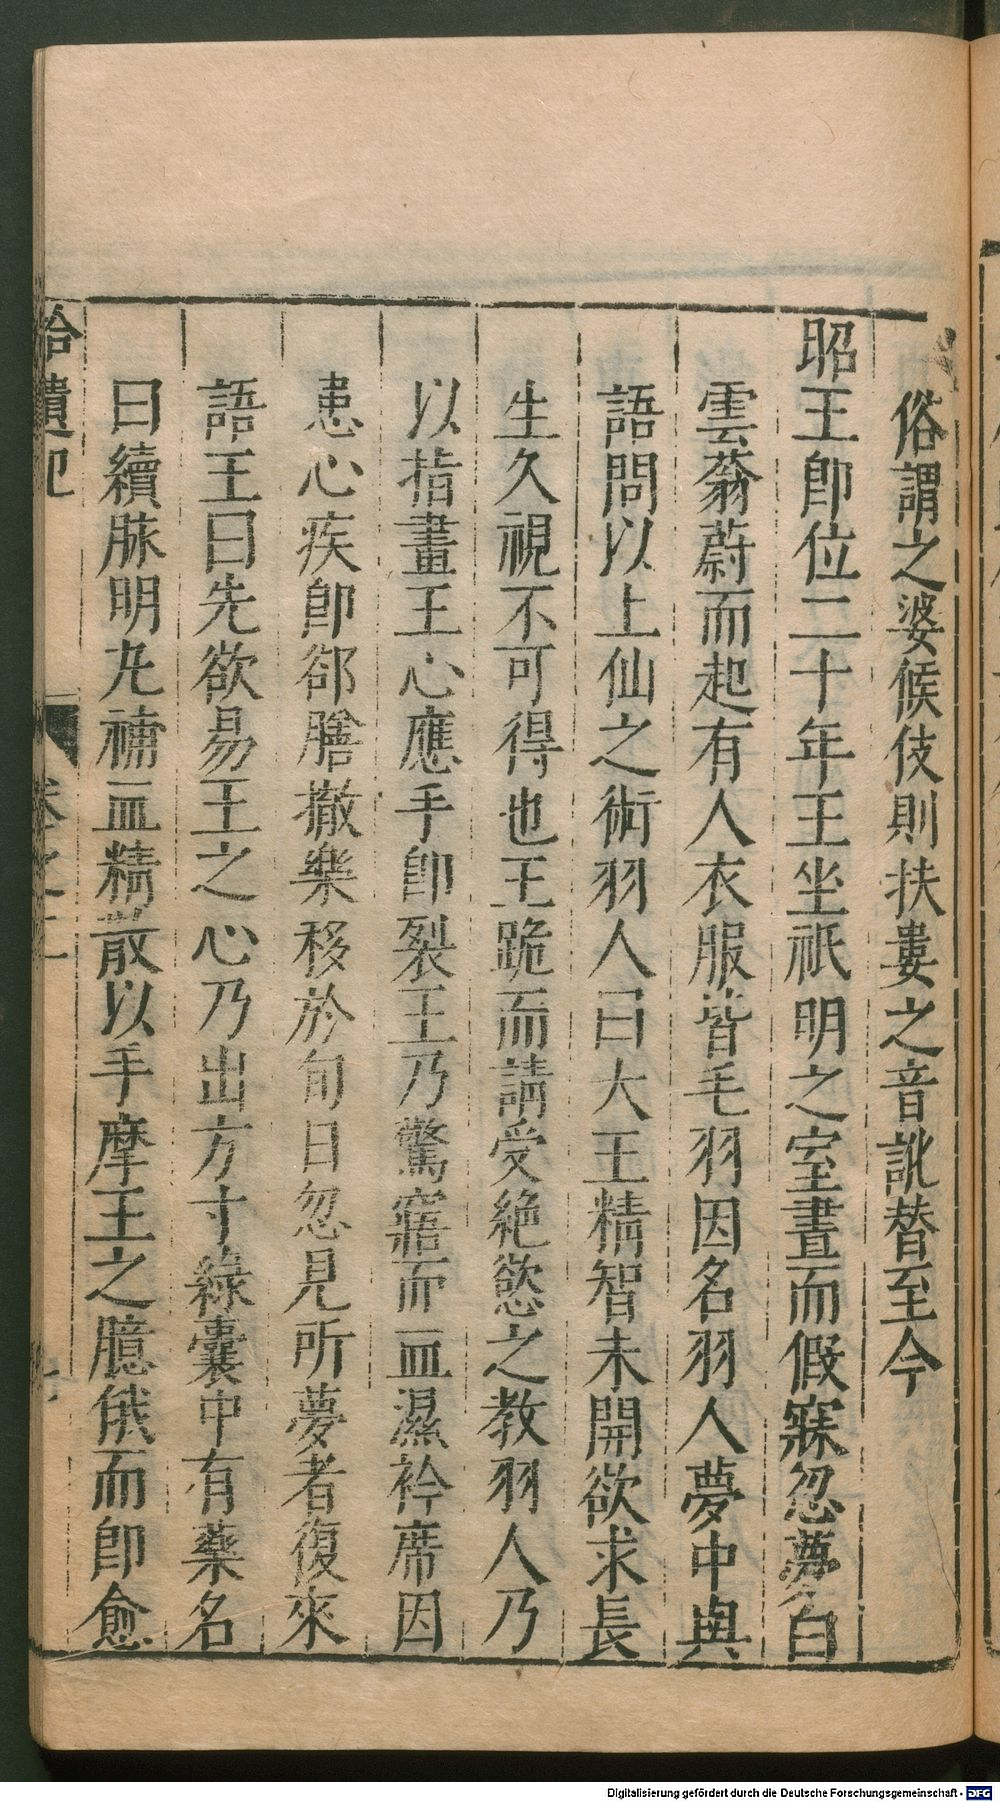 俗謂之婆候伎則扶婁之音訛替至今
昭王卽位二十年王坐祇明之室晝而假寐忽夢白
雲蓊蔚而起有人衣服皆毛羽因名羽人夢中與
語問以上仙之術羽人曰大王精智未開欲求長
生久視不可得也王跪而請受絶慾之教羽人乃
以指畫王心應手卽裂王乃驚寤而血濕衿席因
患心疾卽郤膳撤樂移於旬日忽見所夢者復來
語王曰先欲易王之心乃出方寸綠囊中有藥名
曰續脉明丸補血精散以手摩王之臆俄而卽愈
拾遺記
卷之二
七
Digitalisierung gefördert durch die Deutsche Forschungsgemeinschaft - DFG